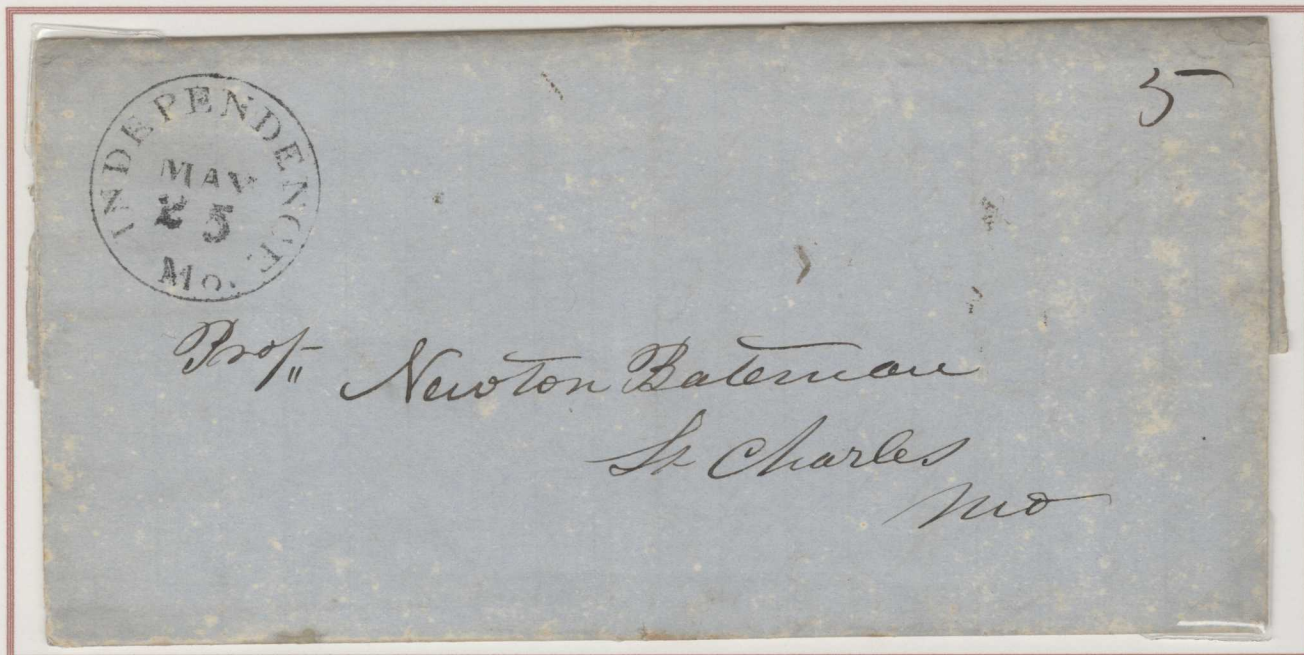 INDEPENDENCE
MAY
25
Mo.
5
Prof. Newton Bateman
St Charles
Mo